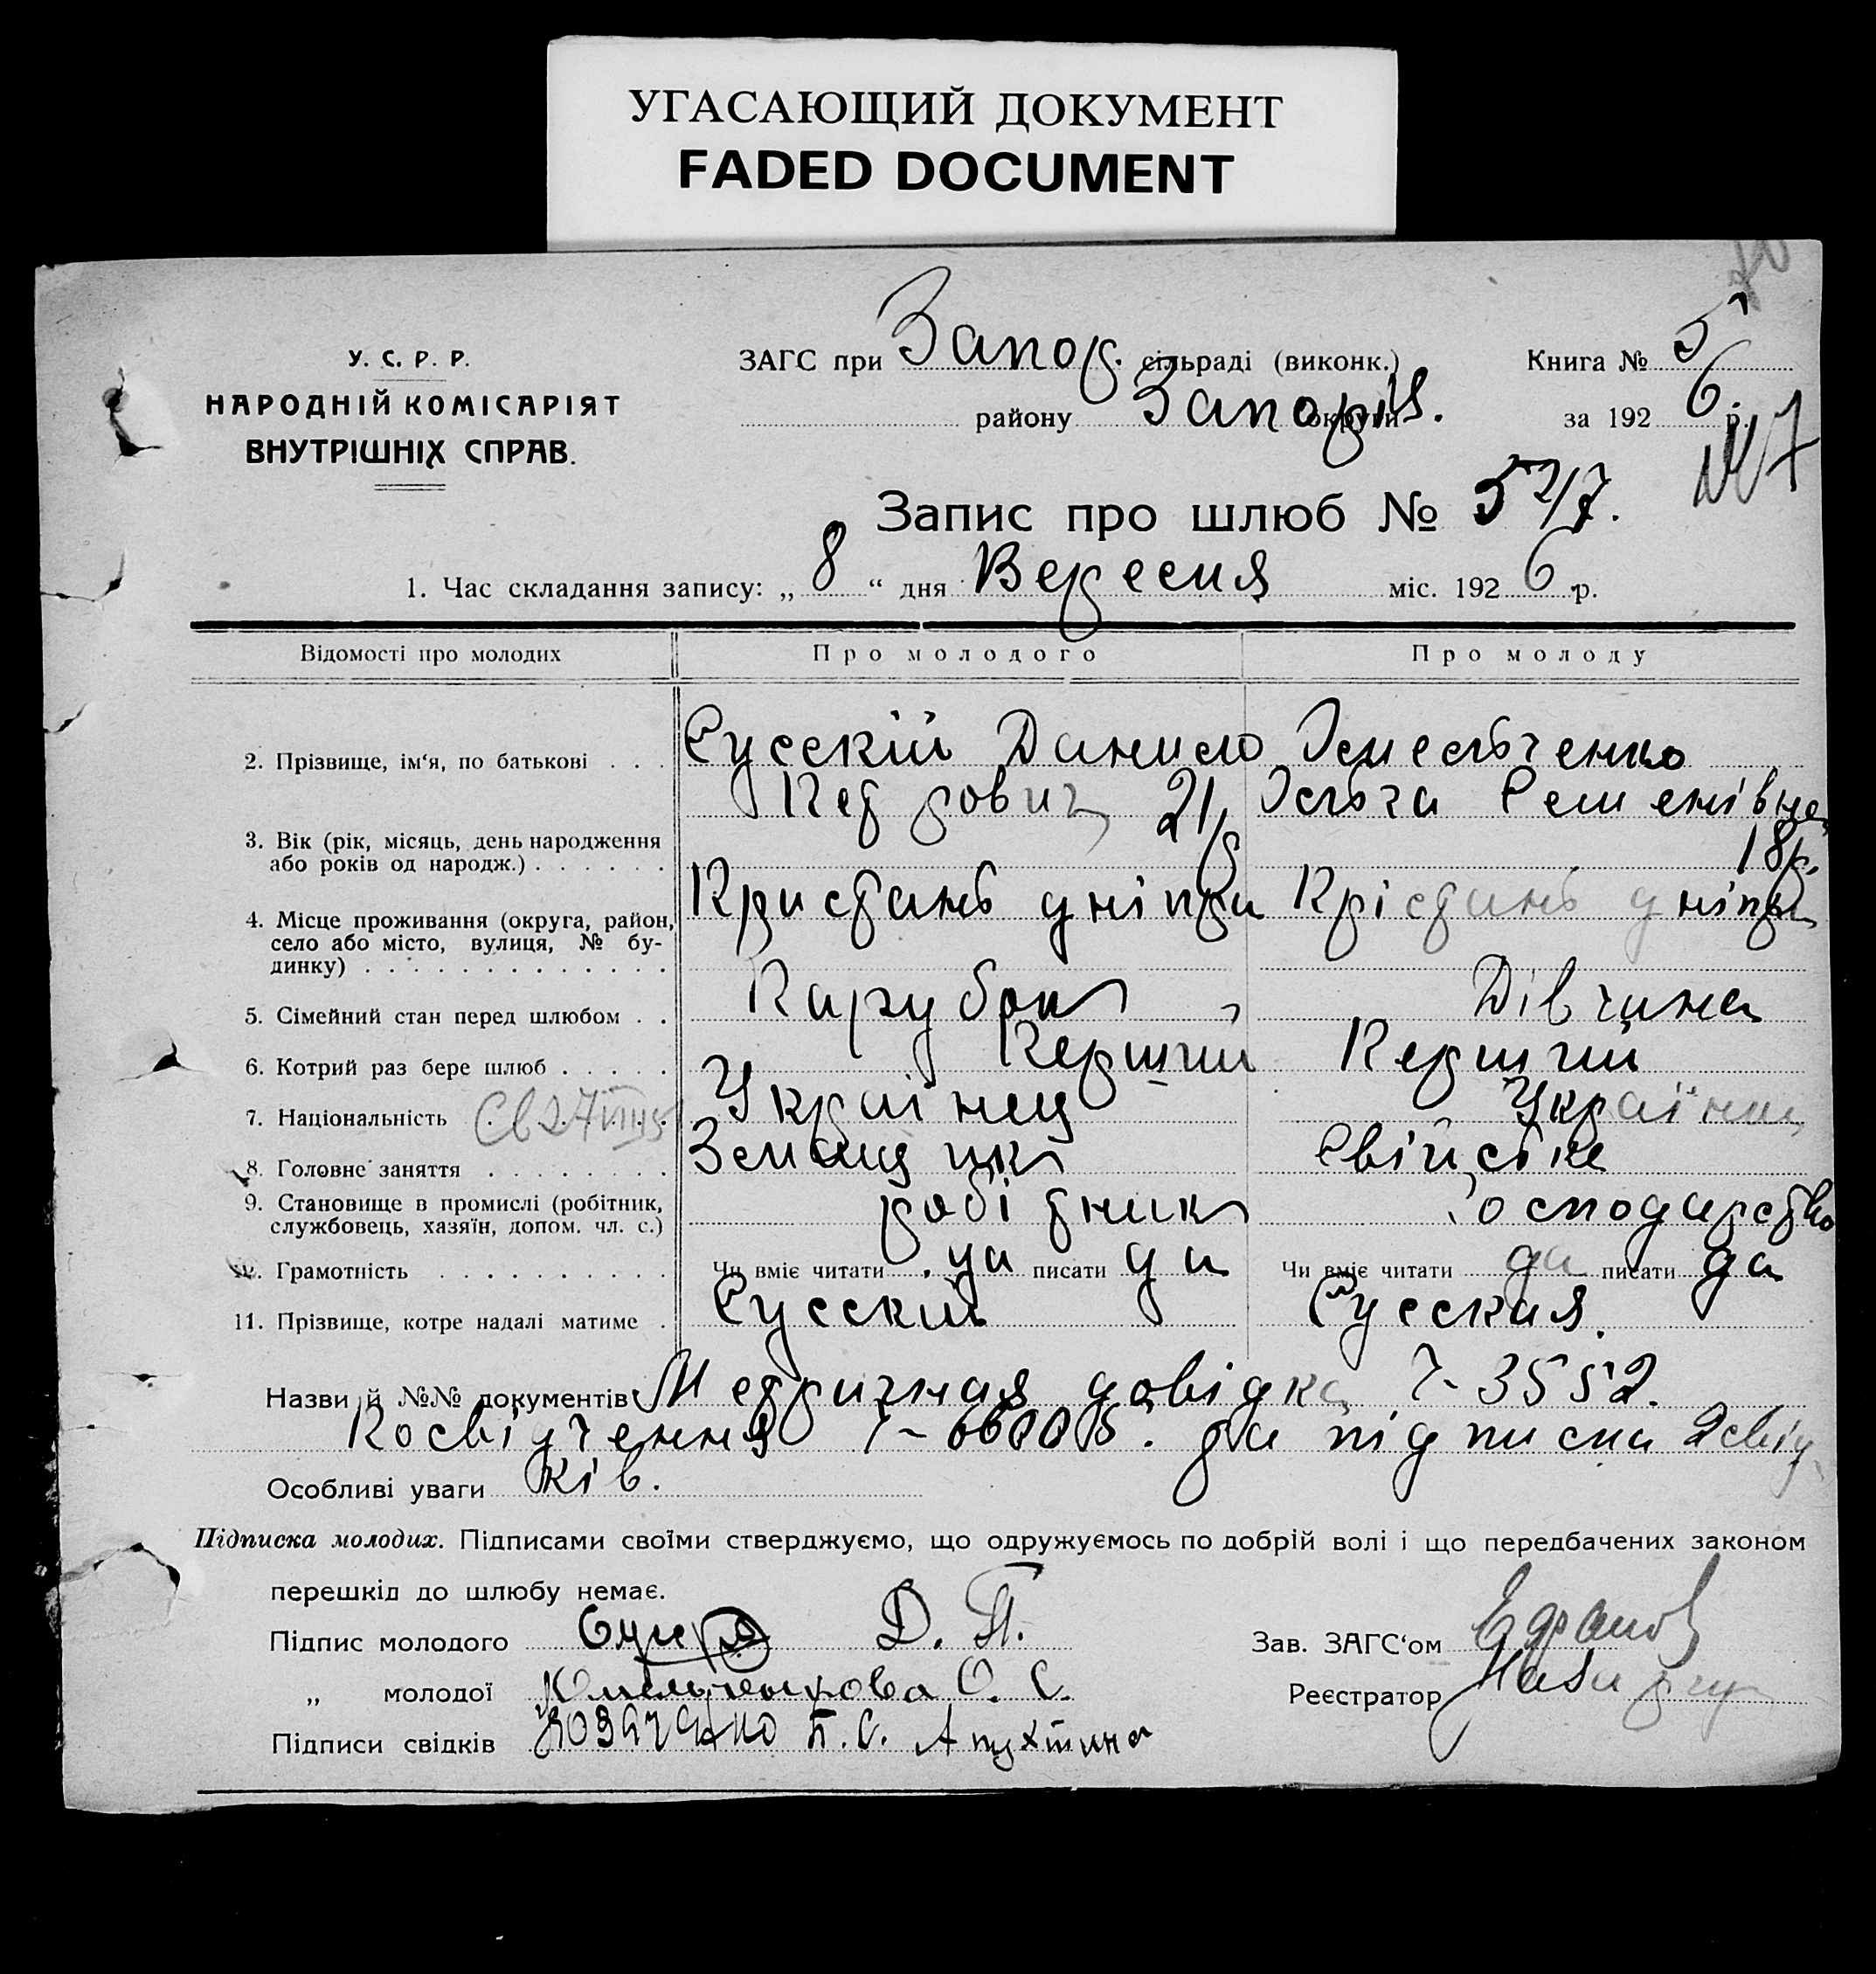 УГАСАЮЩИЙ ДОКУМЕНТ
FADED DOCUMENT
У. С. Р. Р.
НАРОДНІЙ КОМІСАРІЯТ
ВНУТРІШНІХ СПРАВ.
ЗАГС при Запор. сільраді (виконк.)
Книга № 5
району Запоріз. округи
за 1926 р.
Запис про шлюб № 527.
1. Час складання запису: „ 8 “ дня Вересня міс. 1926 р.
Відомості про молодих
Про молодого
Про молоду
2. Прізвище, ім‘я, по батькові . . .
Русскій Данило
Петрович 21 р
Омельченко
Ольга Семенівна
18 р.
3. Вік (рік, місяць, день народження
або років од народж.) . . . . . .
4. Місце проживання (округа, район,
село або місто, вулиця, № бу-
динку) . . . . . . . . . . . . .
Пристань дніпра
Прістань дніпра
5. Сімейний стан перед шлюбом . .
Парубок
Дівчина
6. Котрий раз бере шлюб . . . . .
Первий
Первий
7. Національність
Українец
Українка
8. Головне заняття . . . . . . . .
Свійське
9. Становище в промислі (робітник,
службовець, хазяїн, допом. чл. с.)
робітник
господарство
10. Грамотність . . . . . . . . . .
Чи вміє читати да писати да
Чи вміє читати да писати да
11. Прізвище, котре надалі матиме .
Русский
Русская.
Назви й №№ документів Метричная довідка 7-3552.
Посвідчення 7-6600/5. та підписка 2 свід
Особливі уваги ків.
Підписка молодих. Підписами своїми стверджуємо, що одружуємось по добрій волі і що передбачених законом
перешкід до шлюбу немає.
Підпис молодого Д. П.
Зав. ЗАГС‘ом
„ молодої О. С.
Реєстратор
Підписи свідків Козаченко П. С. Апухтина